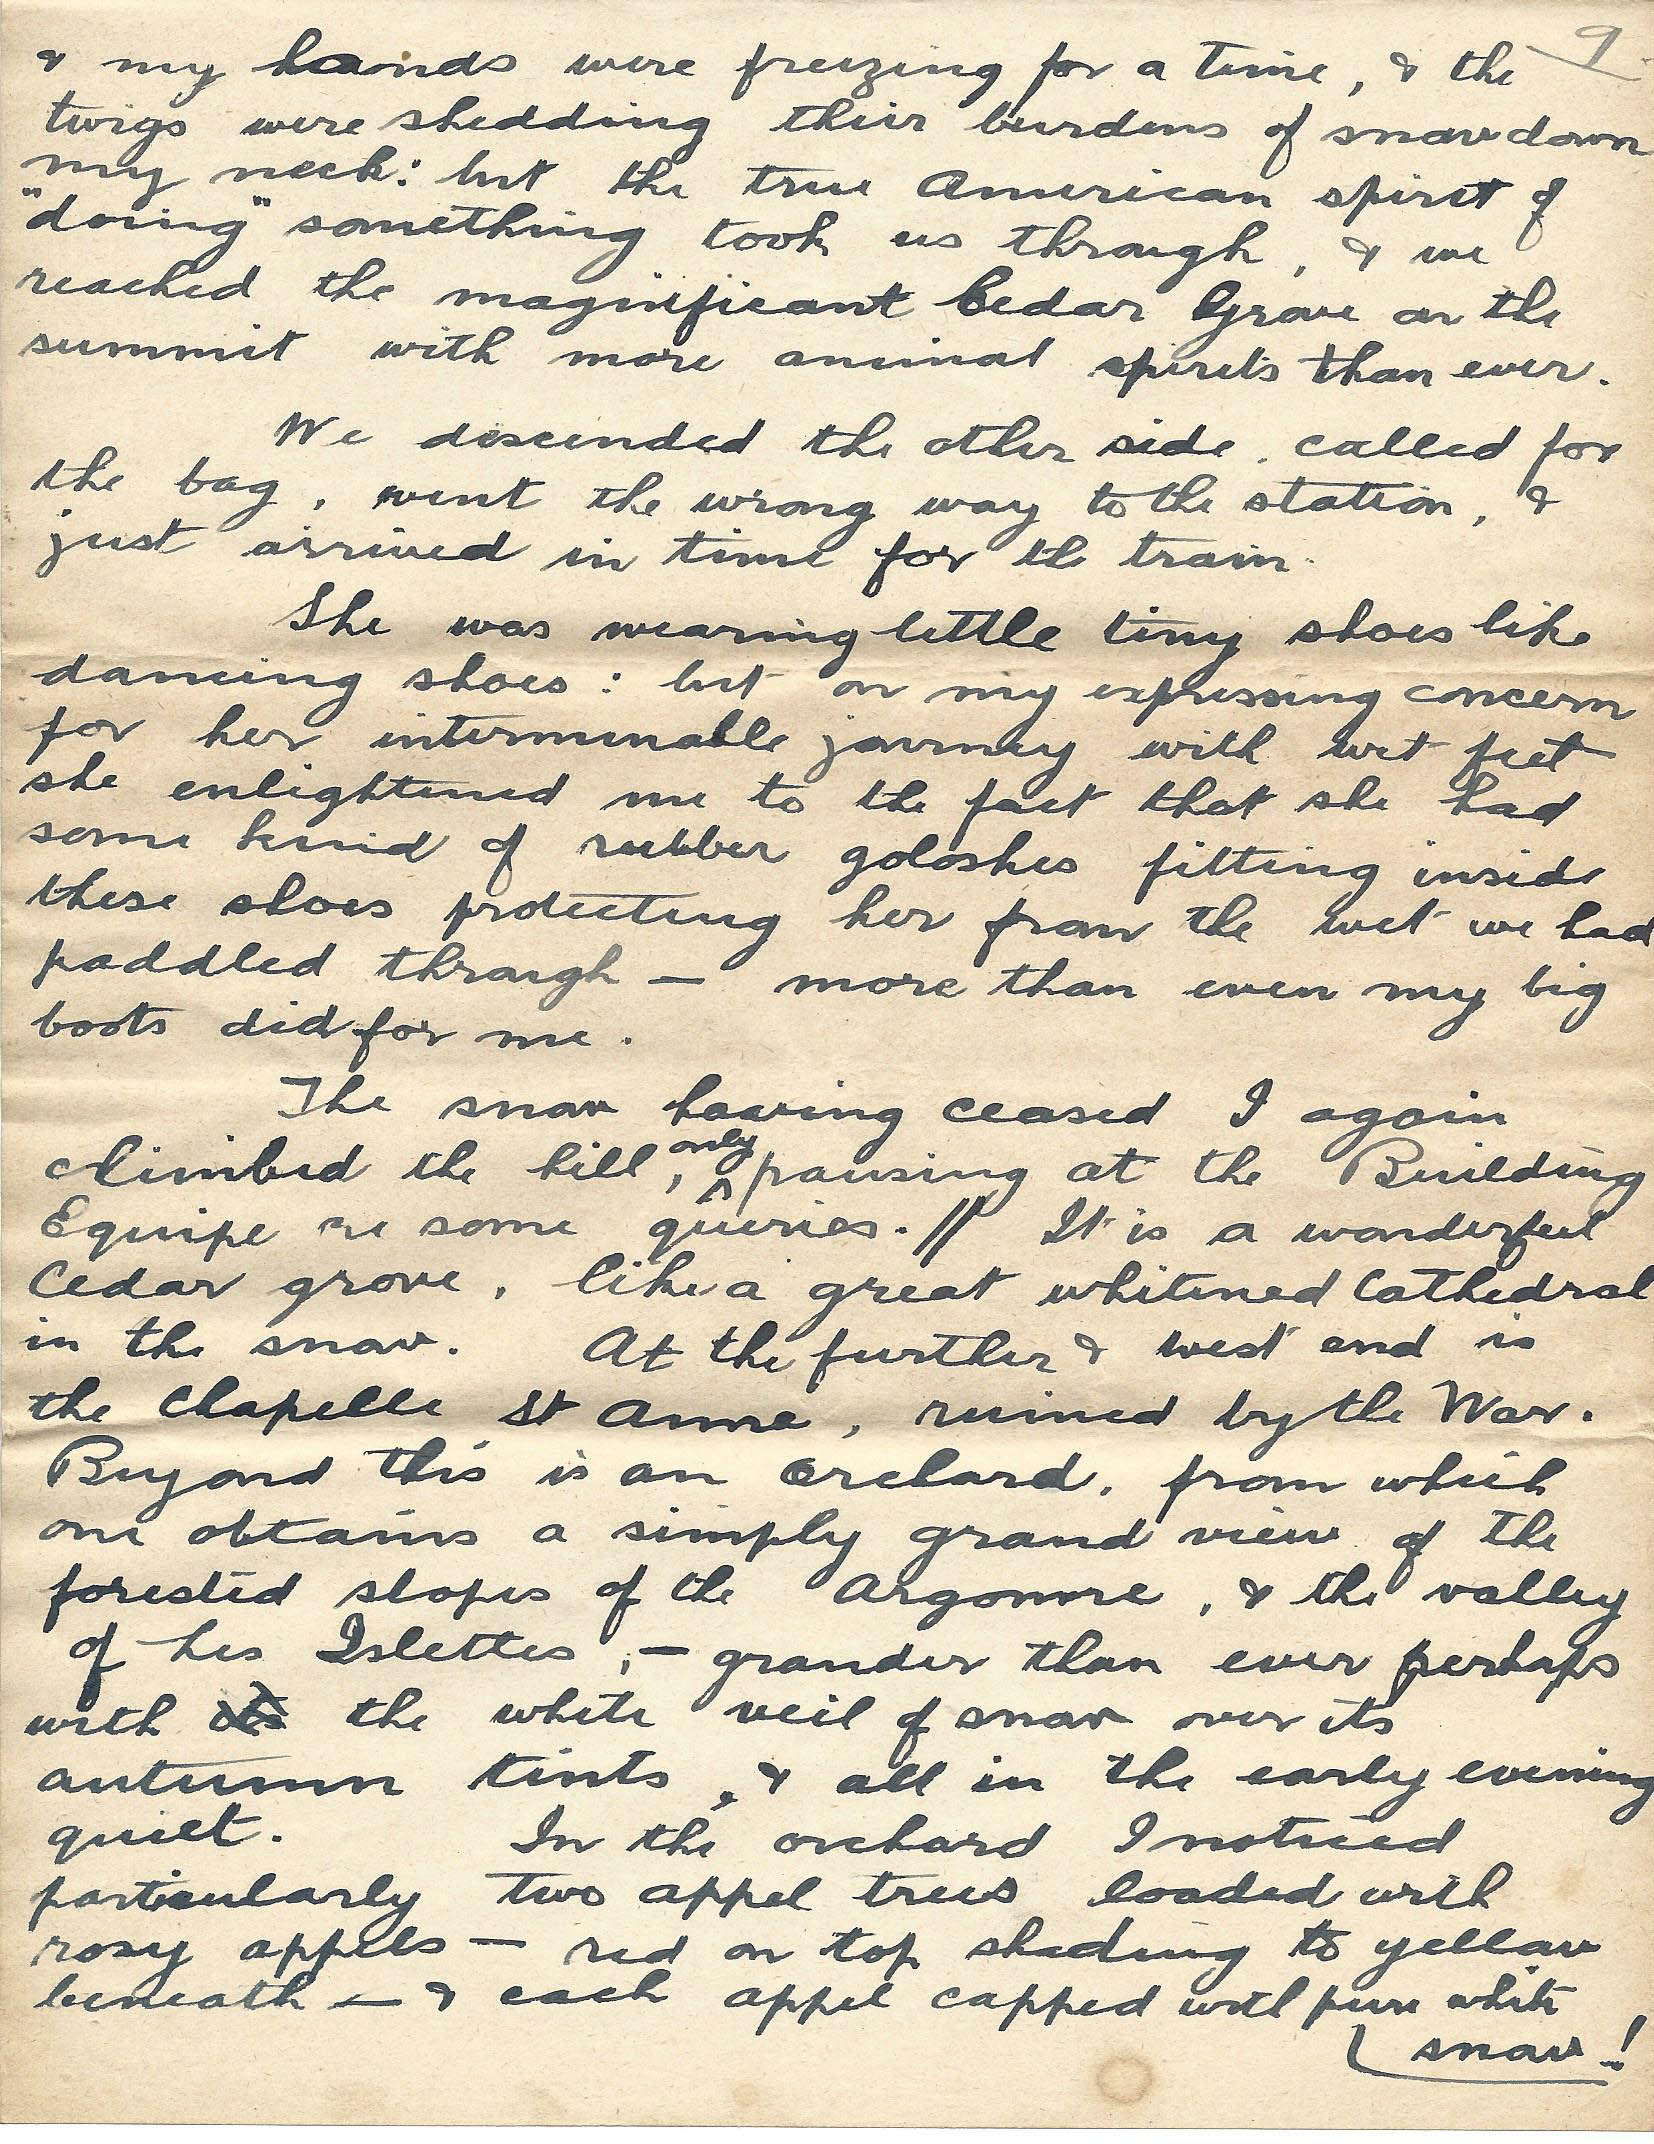 9
& my hands were freezing for a time, & the
twigs were shedding their burdens of snow down
my neck: but the true American spirit of
"doing" something took us through, & we
reached the magnificant Cedar Grove on the
summit with more animal spirits than ever.
We descended the other side, called for
the bag, went the wrong way to the station, &
just arrived in time for the train.
She was wearing little tiny shoes like
dancing shoes: but on my expressing concern
for her interminable journey with wet feet
she enlightened me to the fact that she had
some kind of rubber goloshes fitting inside
these shoes protecting her from the wet we had
paddled through — more than even my big
boots did for me.
The snow having ceased I again
climbed the hill, only pausing at the Building
Equipe re some queries. // It is a wonderful
Cedar grove, like a great whitened Cathedral
in the snow. At the further & west end is
the Chapelle St Anne, ruined by the War.
Beyond this is an orchard, from which
one obtains a simply grand view of the
forested slopes of the Argonne, & the valley
of les Islettes, — grander than ever perhaps
with the white veil of snow over its
autumn tints, & all in the early evening
quiet. In the orchard I noticed
particularly two appel trees loaded with
rosy appels — red on top shading to yellow
beneath — & each appel capped with pure white
snow!